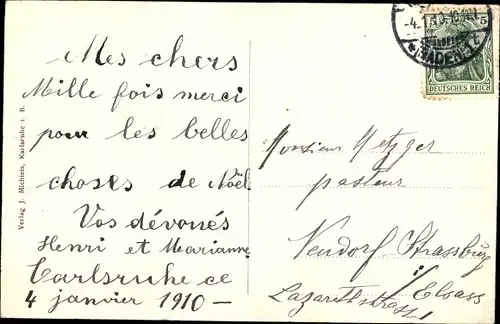 Mes chers
Mille fois merci
pour les belles
choses de Noël
Vos dévoués
Henri et Marianne
Carlsruhe ce
4 janvier 1910 —
Verlag J. Michiels, Karlsruhe i. B.
Monsieur Metzger
pasteur
Neudorf-Strassburg
i/ Elsass
Lazarethstrasse
(BADEN)
5
DEUTSCHES REICH